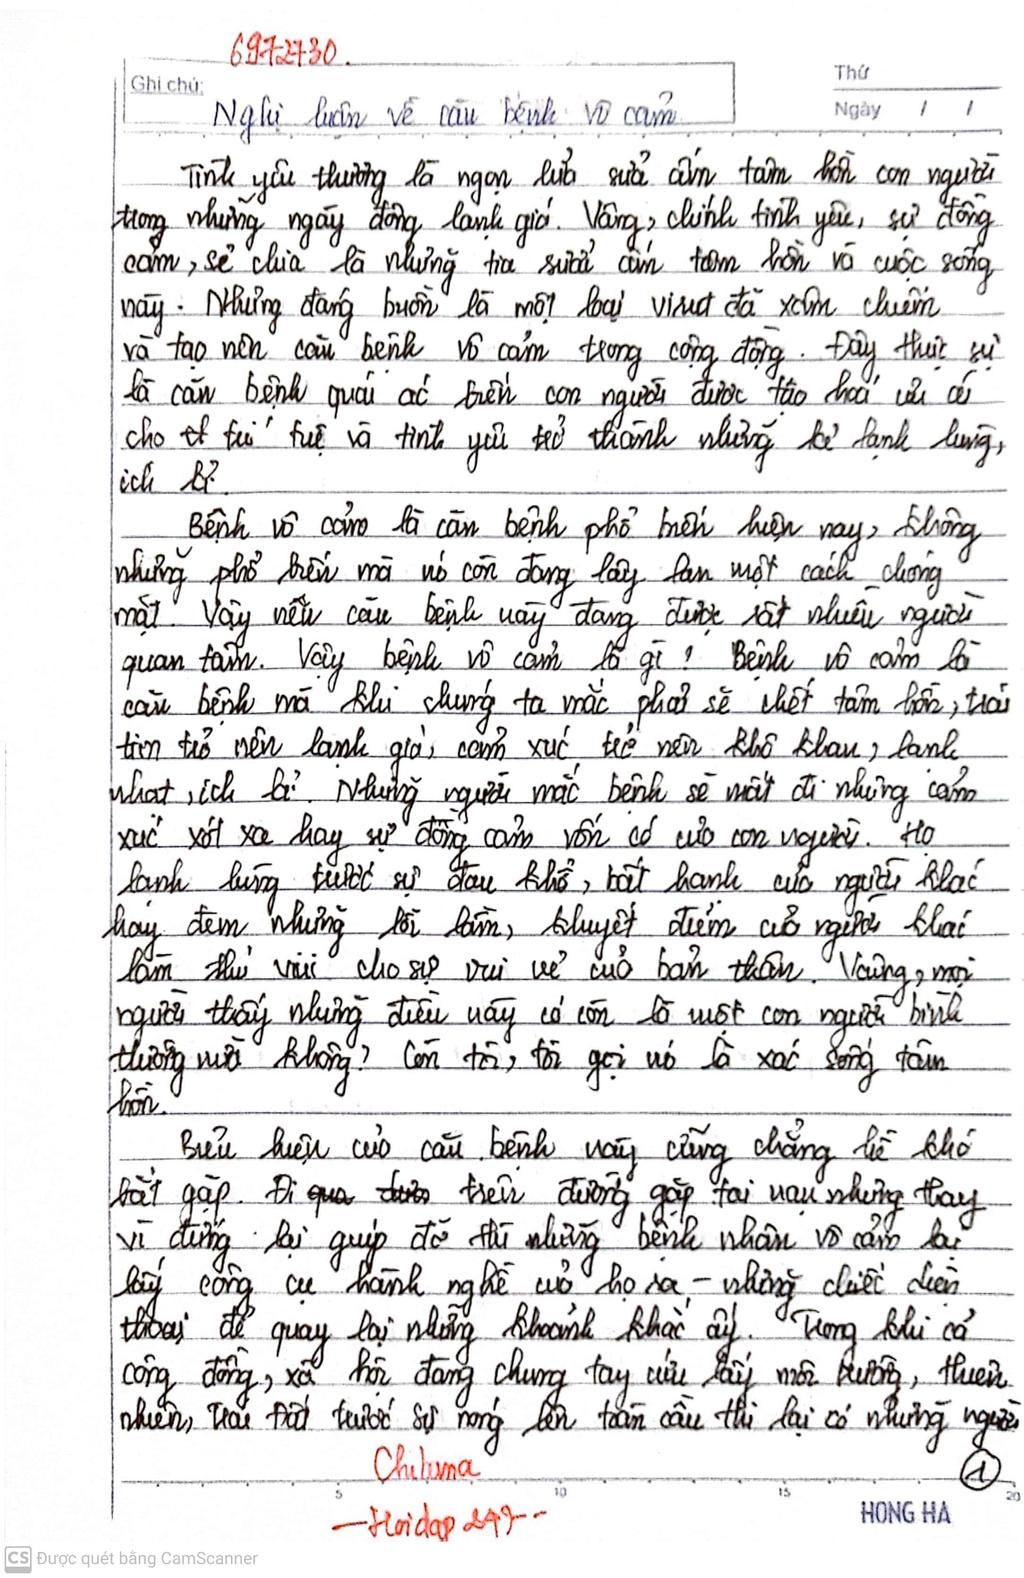 6972730.
Ghi chú:
Thứ
Ngày / /
Nghị luận về căn bệnh vô cảm
Tình yêu thương là ngọn lửa sưởi ấm tâm hồn con người
trong những ngày đông lạnh giá. Vâng, chính tình yêu, sự đồng
cảm, sẻ chia là những tia sưởi ấm tâm hồn và cuộc sống
này. Nhưng đáng buồn là một loại virut đã xâm chiếm
và tạo nên căn bệnh vô cảm trong cộng đồng. Đây thực sự
là căn bệnh quái ác biến con người được tạo hoá ưu ái
cho trí tuệ và tình yêu trở thành những kẻ lạnh lùng,
ích kỉ.
Bệnh vô cảm là căn bệnh phổ biến hiện nay, không
những phổ biến mà nó còn đang lây lan một cách chóng
mặt. Vậy nên căn bệnh này đang được rất nhiều người
quan tâm. Vậy bệnh vô cảm là gì? Bệnh vô cảm là
căn bệnh mà khi chúng ta mắc phải sẽ chết tâm hồn, trái
tim trở nên lạnh giá, cảm xúc trở nên khô khan, lạnh
nhạt, ích kỉ. Những người mắc bệnh sẽ mất đi những cảm
xúc xót xa hay sự đồng cảm vốn có của con người. Họ
lạnh lùng trước sự đau khổ, bất hạnh của người khác
hay đem những lỗi lầm, khuyết điểm của người khác
làm thú vui cho sự vui vẻ của bản thân. Vâng, mọi
người thấy những điều này có còn là một con người bình
thường nữa không? Còn tôi, tôi gọi nó là xác sống tâm
hồn.
Biểu hiện của căn bệnh này cũng chẳng hề khó
bắt gặp. Đi qua trên đường gặp tai nạn nhưng thay
vì dừng lại giúp đỡ thì những bệnh nhân vô cảm lại
lấy công cụ hành nghề của họ ra - những chiếc điện
thoại để quay lại những khoảnh khắc ấy. Trong khi cả
cộng đồng, xã hội đang chung tay cứu lấy môi trường, thiên
nhiên, Trái Đất trước sự nóng lên toàn cầu thì lại có những người
Chiluma
1
5 10 15 20
-Hoidap 247--
HONG HA
CS Được quét bằng CamScanner